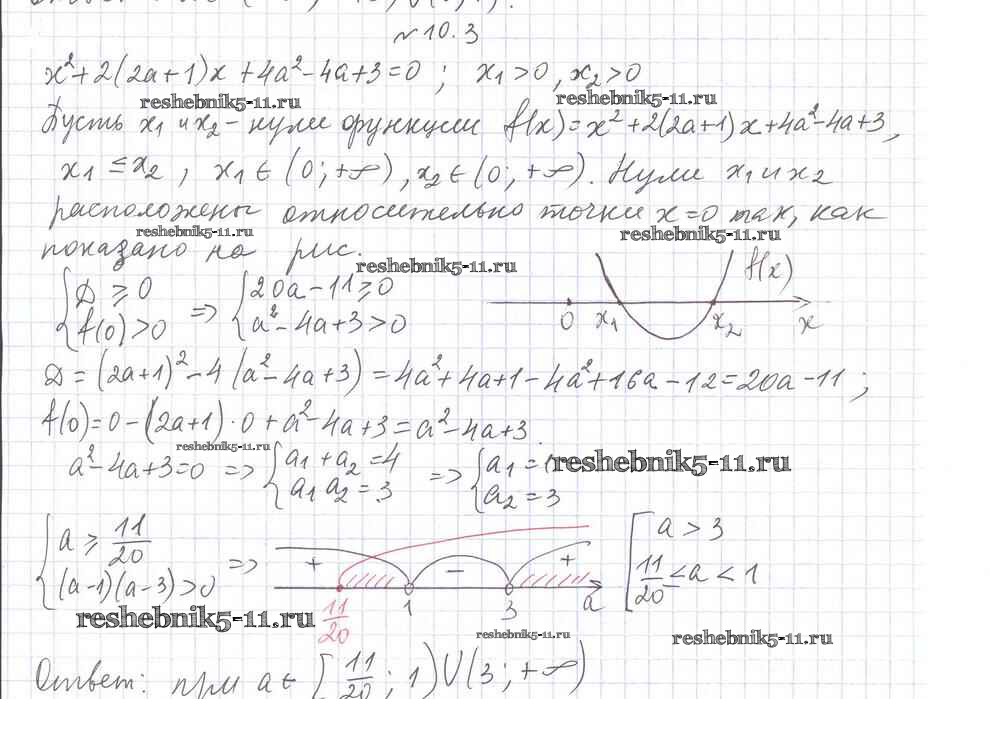 № 10.3
x² + 2(2a+1)x + 4a² - 4a + 3 = 0 ; x₁ > 0, x₂ > 0
reshebnik5-11.ru reshebnik5-11.ru
Пусть x₁ и x₂ - нули функции f(x) = x² + 2(2a+1)x + 4a² - 4a + 3,
x₁ ≤ x₂ ; x₁ ∈ (0; +∞), x₂ ∈ (0; +∞). Нули x₁ и x₂
расположены относительно точки x = 0 так, как
reshebnik5-11.ru reshebnik5-11.ru
показано на рис.
reshebnik5-11.ru
{ D ≥ 0 ⇒ { 20a - 11 ≥ 0
f(0) > 0 a² - 4a + 3 > 0
f(x)
0 x₁ x₂ x
D = (2a+1)² - 4(a² - 4a + 3) = 4a² + 4a + 1 - 4a² + 16a - 12 = 20a - 11 ;
f(0) = 0 - (2a+1)·0 + a² - 4a + 3 = a² - 4a + 3.
reshebnik5-11.ru
a² - 4a + 3 = 0 ⇒ { a₁ + a₂ = 4 ⇒ { a₁ = reshebnik5-11.ru
a₁ a₂ = 3 a₂ = 3
{ a ≥ 11/20 ⇒ + - + [ a > 3
(a-1)(a-3) > 0 11/20 1 3 a 11/20 ≤ a < 1
reshebnik5-11.ru reshebnik5-11.ru reshebnik5-11.ru
Ответ: при a ∈ [11/20 ; 1) ∪ (3 ; +∞)